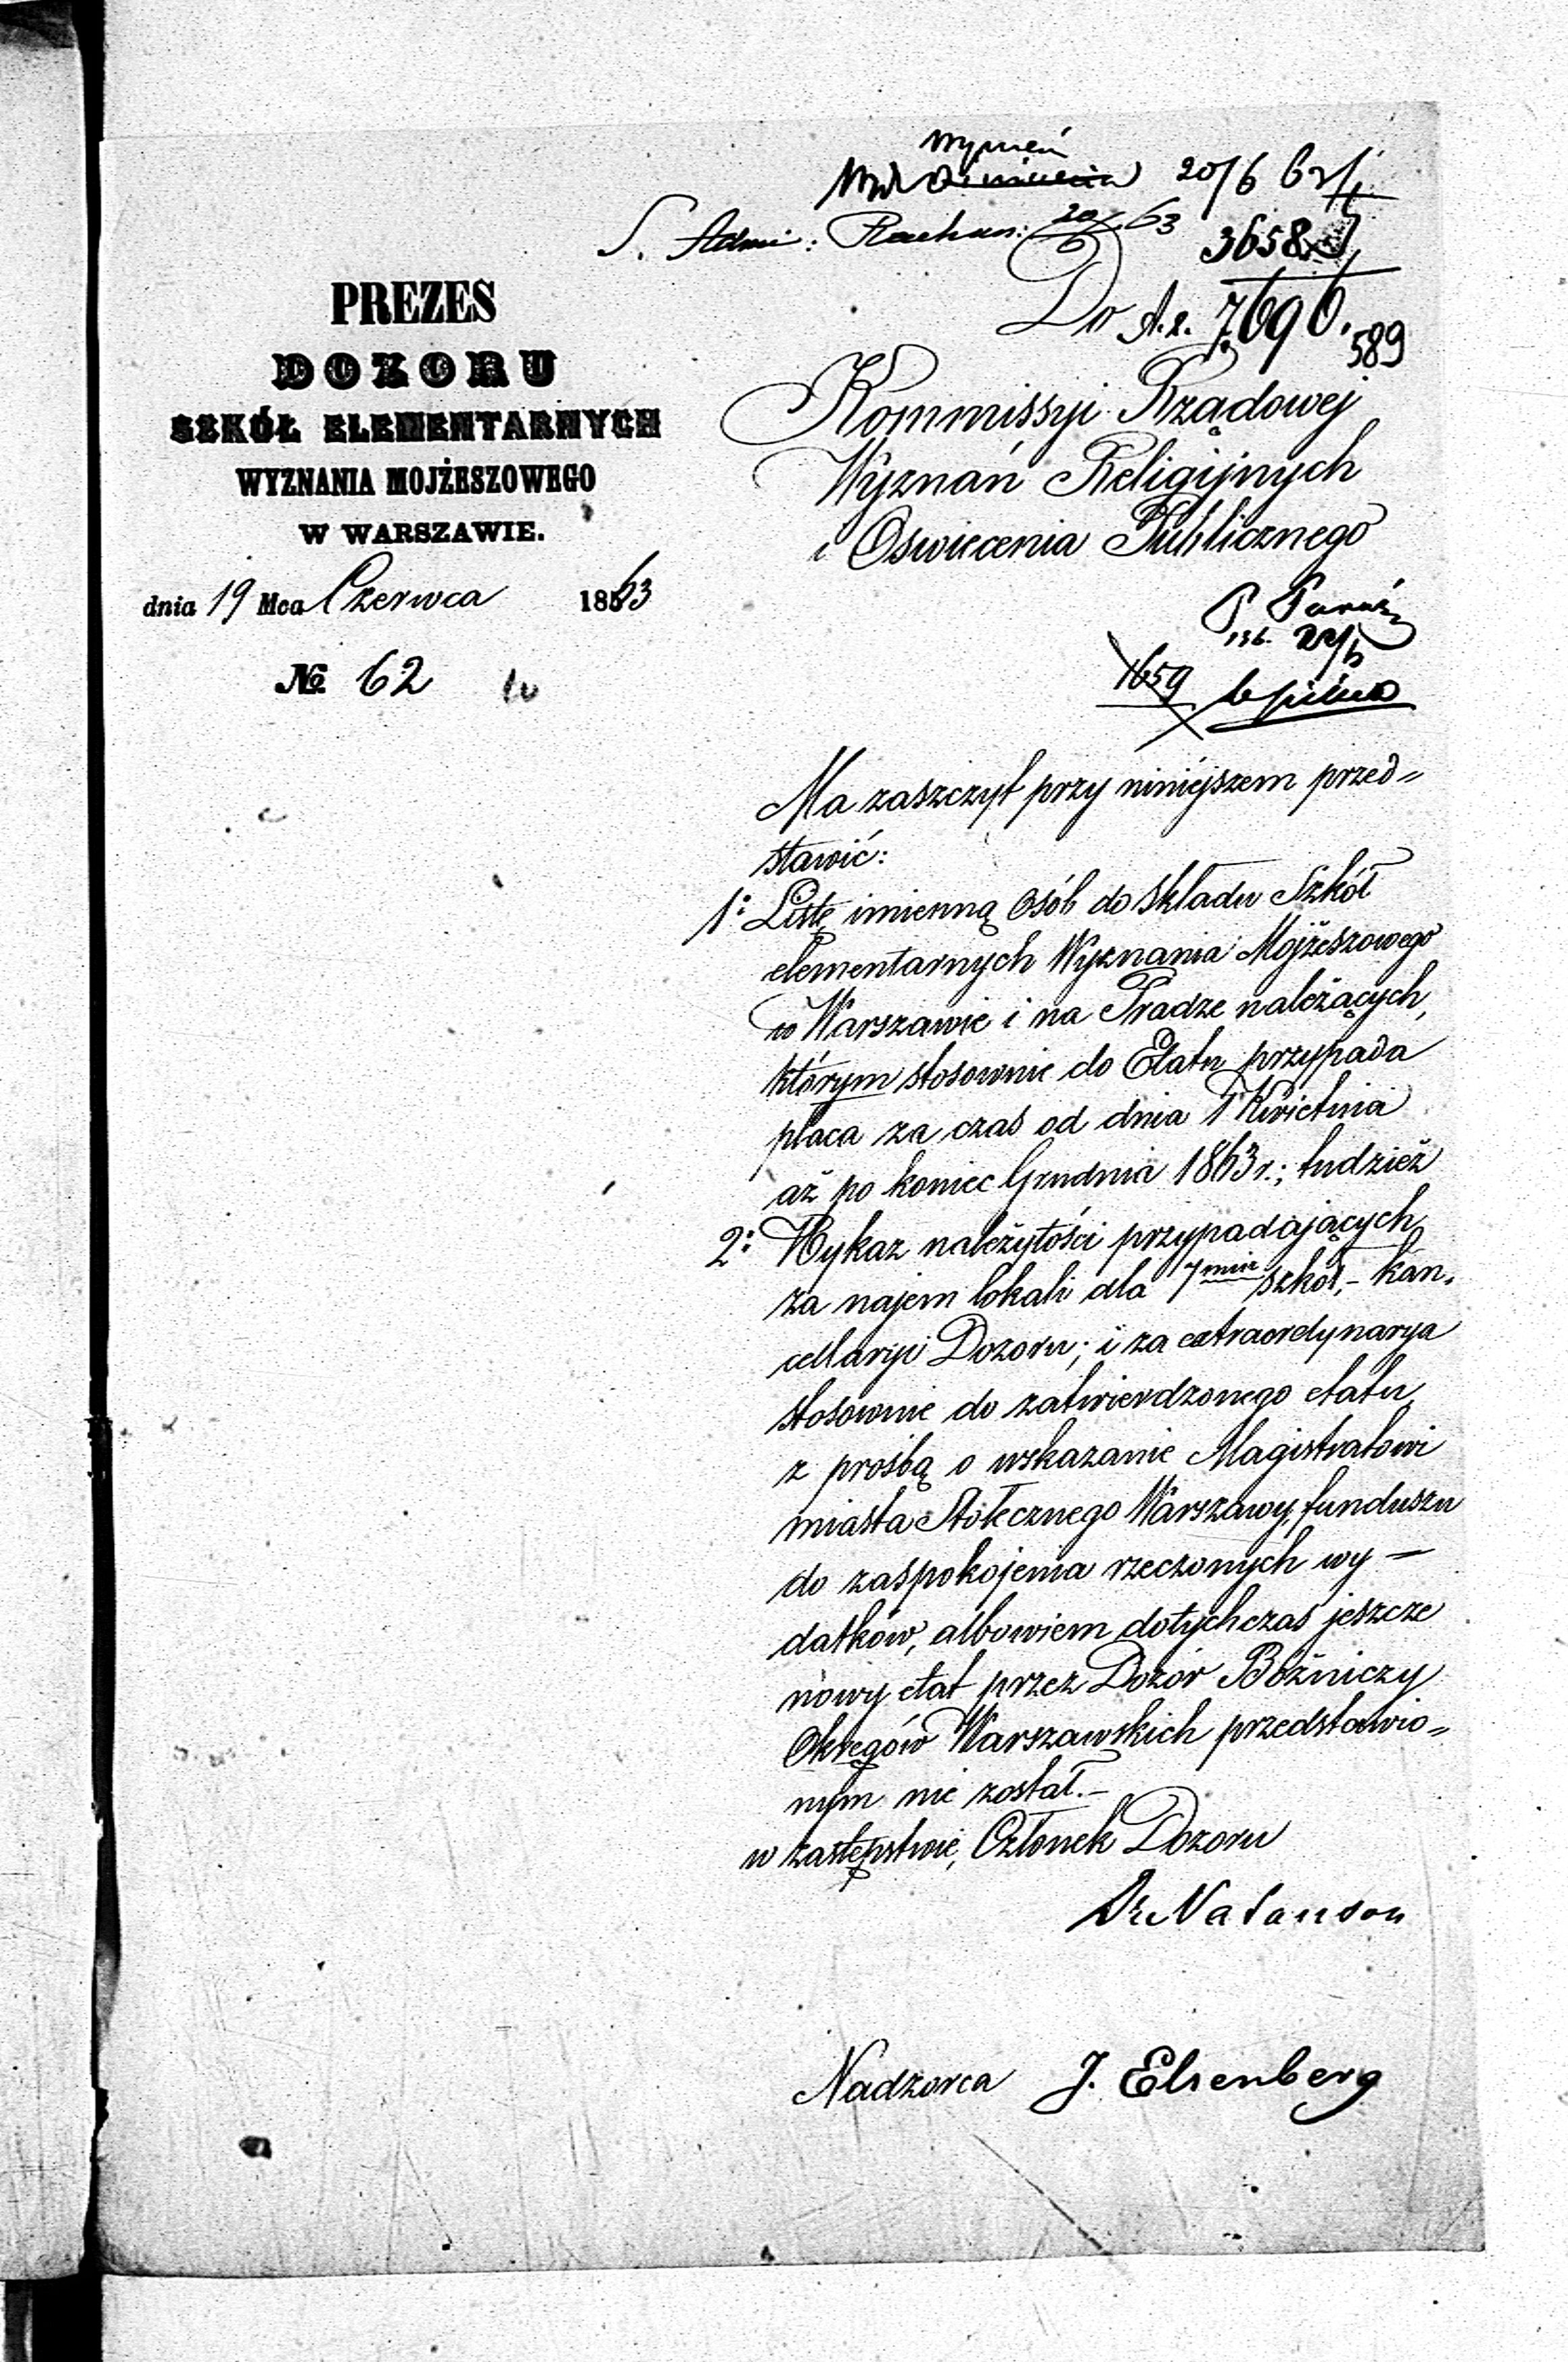 20/6 63
S. Admi: Rachun: 20/6 63
3658
PREZES
DOZORU
SZKÓŁ ELEMENTARNYCH
WYZNANIA MOJŻESZOWEGO
W WARSZAWIE.
dnia 19 Mca Czerwca 1863
№ 62
Do 7696.
589
Kommissyi Rządowej
Wyznań Religijnych
i Oświecenia Publicznego
1659
Ma zaszczyt przy niniéjszem przed=
stawić:
1: Listę imienną osób do składu Szkół
elementarnych Wyznania Mojżeszowego
w Warszawie i na Pradze należących,
którym stosownie do Etatu przypada
płaca za czas od dnia 1 Kwietnia
aż po koniec Grudnia 1863 r.; tudzież
2: Wykaz należytości przypadających
za najem lokali dla 7miu szkół, - kan.
cellaryi Dozoru; i za extraordynarya
stosownie do zatwierdzonego etatu,
z prośbą o wskazanie Magistratowi
miasta Stołecznego Warszawy, funduszu
do zaspokojenia rzeczonych wy —
datków, albowiem dotychczas jeszcze
nowy etat przez Dozór Bóżniczy
Okręgów Warszawskich przedstawio=
nym nie został. -
w zastępstwie, Członek Dozoru
Dr Natanson
Nadzorca J. Elsenberg